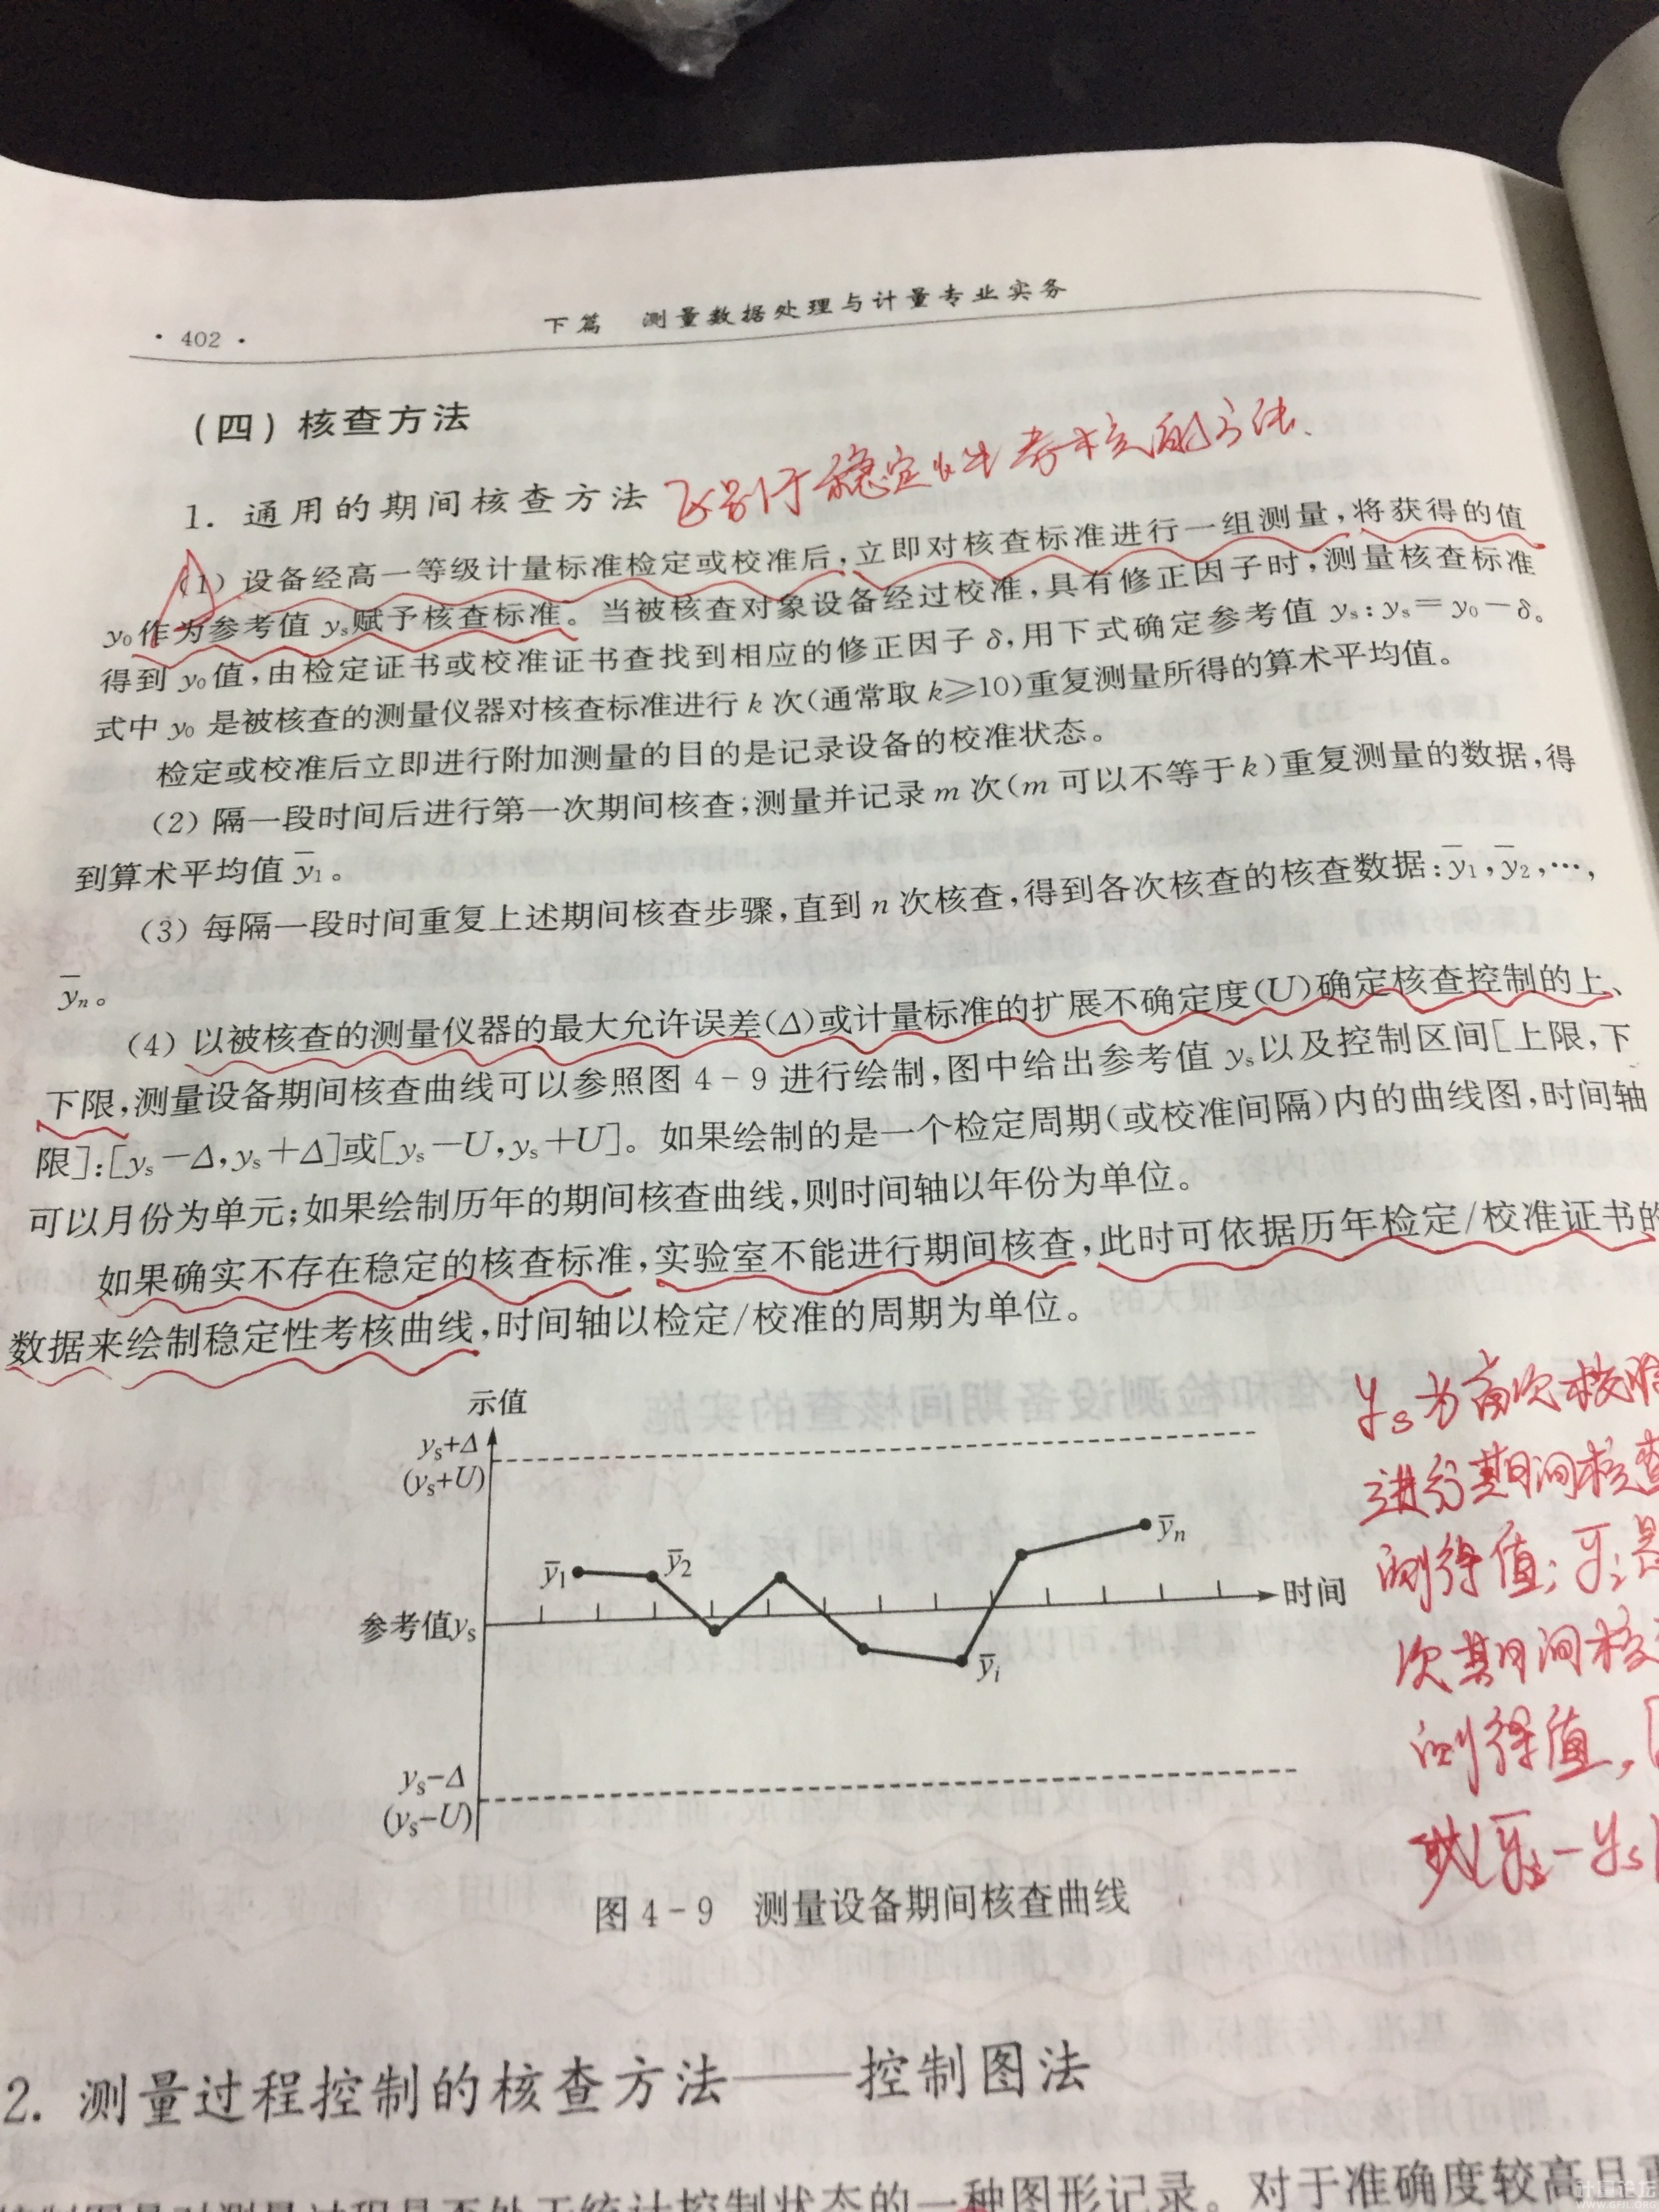 · 402 ·
下篇 测量数据处理与计量专业实务
(四) 核查方法
1. 通用的期间核查方法 区别于稳定性考核的方法、
(1) 设备经高一等级计量标准检定或校准后,立即对核查标准进行一组测量,将获得的值
y₀作为参考值 yₛ赋予核查标准。当被核查对象设备经过校准,具有修正因子时,测量核查标准
得到 y₀值,由检定证书或校准证书查找到相应的修正因子 δ,用下式确定参考值 yₛ:yₛ=y₀-δ。
式中 y₀ 是被核查的测量仪器对核查标准进行 k 次(通常取 k≥10)重复测量所得的算术平均值。
检定或校准后立即进行附加测量的目的是记录设备的校准状态。
(2) 隔一段时间后进行第一次期间核查;测量并记录 m 次(m 可以不等于 k)重复测量的数据,得
到算术平均值 y̅₁。
(3) 每隔一段时间重复上述期间核查步骤,直到 n 次核查,得到各次核查的核查数据:y̅₁,y̅₂,…,
y̅ₙ。
(4) 以被核查的测量仪器的最大允许误差(Δ)或计量标准的扩展不确定度(U)确定核查控制的上、
下限,测量设备期间核查曲线可以参照图 4-9 进行绘制,图中给出参考值 yₛ以及控制区间[上限,下
限]:[yₛ-Δ,yₛ+Δ]或[yₛ-U,yₛ+U]。如果绘制的是一个检定周期(或校准间隔)内的曲线图,时间轴
可以月份为单元;如果绘制历年的期间核查曲线,则时间轴以年份为单位。
如果确实不存在稳定的核查标准,实验室不能进行期间核查,此时可依据历年检定/校准证书的
数据来绘制稳定性考核曲线,时间轴以检定/校准的周期为单位。
示值
yₛ+Δ
(yₛ+U)
y̅₁
y̅₂
y̅ₙ
参考值yₛ
时间
y̅ᵢ
yₛ-Δ
(yₛ-U)
yₛ为首次校准
进行期间核查
测得值; y̅ᵢ是
次期间核查
测得值,
y̅ₛ-yₛ|
图 4-9 测量设备期间核查曲线
2. 测量过程控制的核查方法——控制图法
控制图是对测量过程是否处于统计控制状态的一种图形记录。对于准确度较高且重
计量论坛
WWW.GFJL.ORG